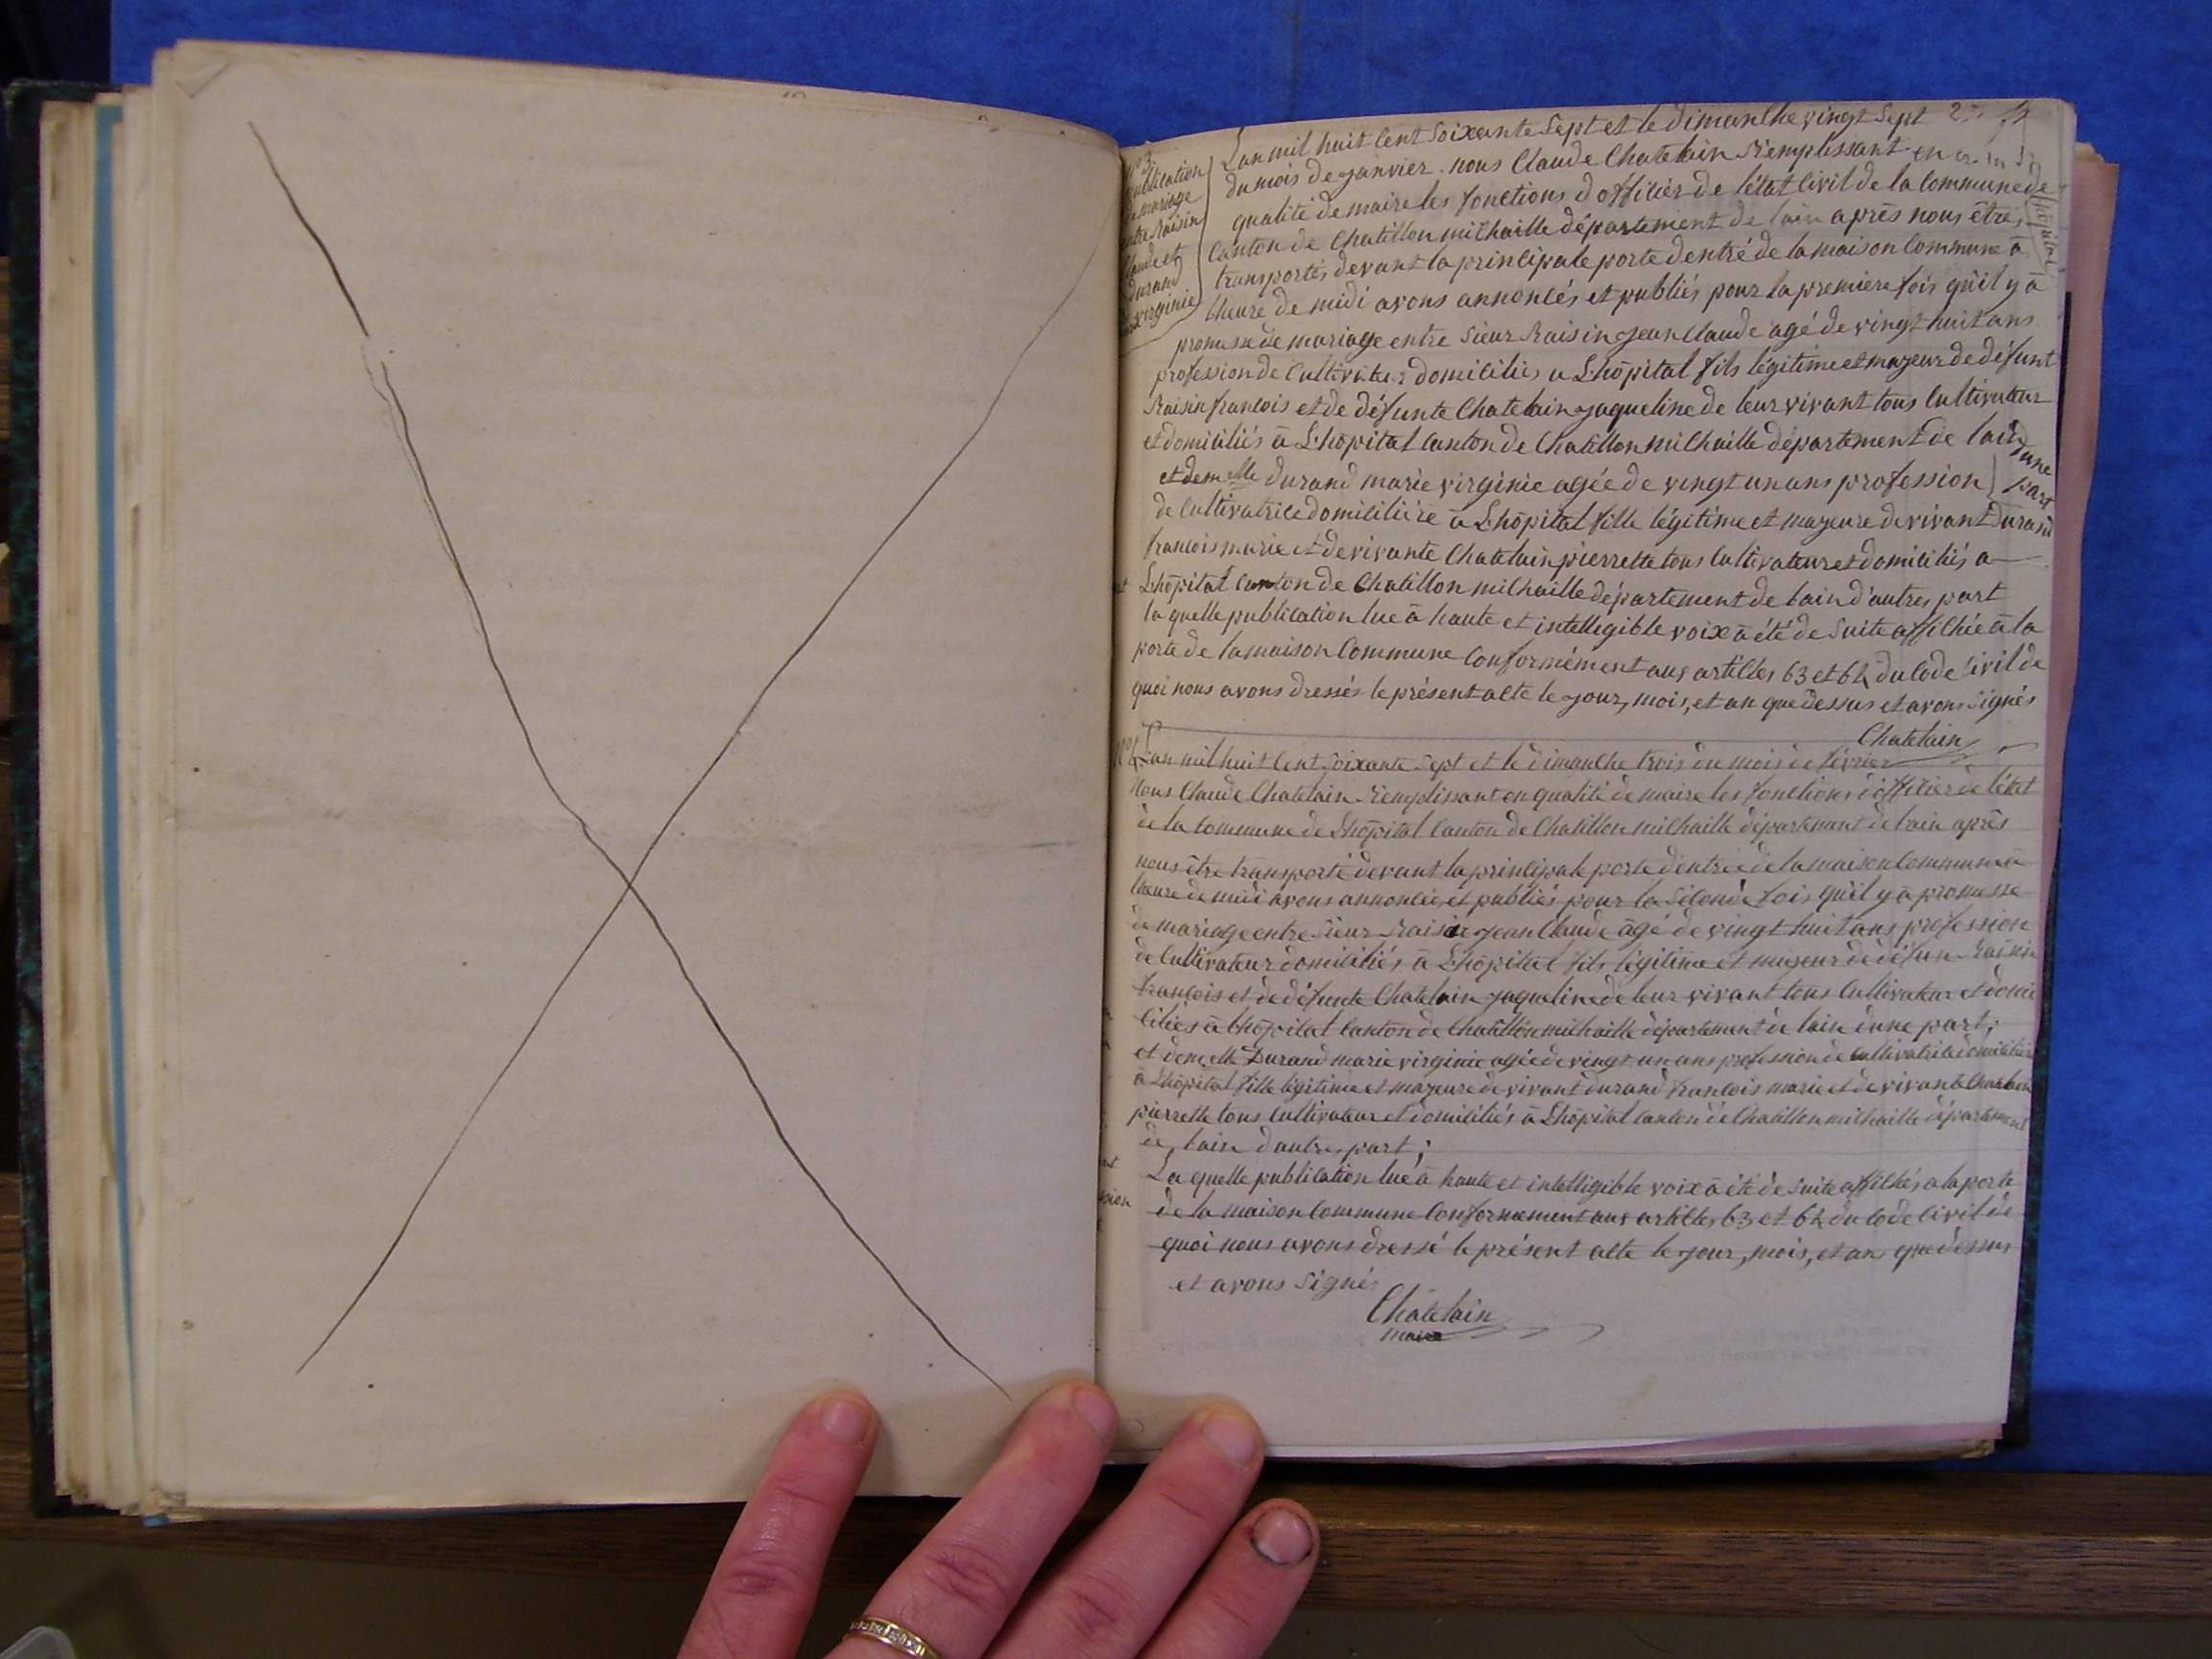 n° 3
publication
de mariage
entre Raisin
Claude et
durand
virginie
L'an mil huit cent soixante sept et le dimanche vingt sept
du mois de janvier nous Claude Chatelain Remplissant en
qualité de maire les fonctions d'officier de l'état Civil de la Commune de
L'hôpital
Canton de Chatillon michaille département de l'ain après nous êtres
transportés devant la principale porte d'entré de la maison Commune à
l'heure de midi avons annoncés et publiés pour la premiere fois qu'il y a
promesse de mariage entre Sieur Raisin jean Claude agé de vingt huit ans
profession de Cultivateur domiciliés a L'hôpital fils légitime et majeur de défunt
Raisin francois et de défunte Chatelain jaqueline de leur vivant tous Cultivateur
et domiciliés à L'hôpital Canton de Chatillon michaille département de l'ain
d'une
part
et demelle durand marie virginie agée de vingt un ans profession
de Cultivatrice domicilière à L'hôpital fille légitime et majeure de vivant durand
francois marie et de vivante Chatelain pierrette tous Cultivateur et domiciliés a
L'hôpital Canton de Chatillon michaille département de l'ain d'autres part
la quelle publication lue à haute et intelligible voix à été de suite affichée à la
porte de la maison Commune Conformément aux articles 63 et 64 du Code Civil de
quoi nous avons dressés le présent acte le jour, mois, et an que dessus et avons signés
Chatelain
n° 4 L'an mil huit cent soixante sept et le dimanche trois du mois de février
Nous Claude Chatelain Remplissant en qualité de maire les fonctions d'officier de l'état
de la Commune de L'hôpital Canton de Chatillon michaille département de l'ain après
nous être transporté devant la principale porte d'entrée de la maison Commune à
l'heure de midi avons annoncés et publiés pour la séconde fois qu'il y a promesse
de mariage entre Sieur Raisin jean Claude âgé de vingt huit ans profession
de Cultivateur domiciliés à L'hôpital fils légitime et majeur de défun Raisin
francois et de défunte Chatelain jaqueline de leur vivant tous Cultivateur et domi
ciliés à L'hôpital Canton de Chatillon michaille département de l'ain d'une part;
et demelle Durand marie virginie agée de vingt un ans profession de Cultivatrice domicilière
à L'hôpital fille légitime et majeure de vivant durand francois marie et de vivante Chatelain
pierrette tous Cultivateur et domiciliés à L'hôpital Canton de Chatillon michaille département
de l'ain d'autre part;
La quelle publication lue à haute et intelligible voix à été de suite affichés a la porte
de la maison Commune Conformement aux articles 63 et 64 du Code Civil de
quoi nous avons dressé le présent acte le jour, mois, et an que dessus
et avons signés
Chatelain
maire